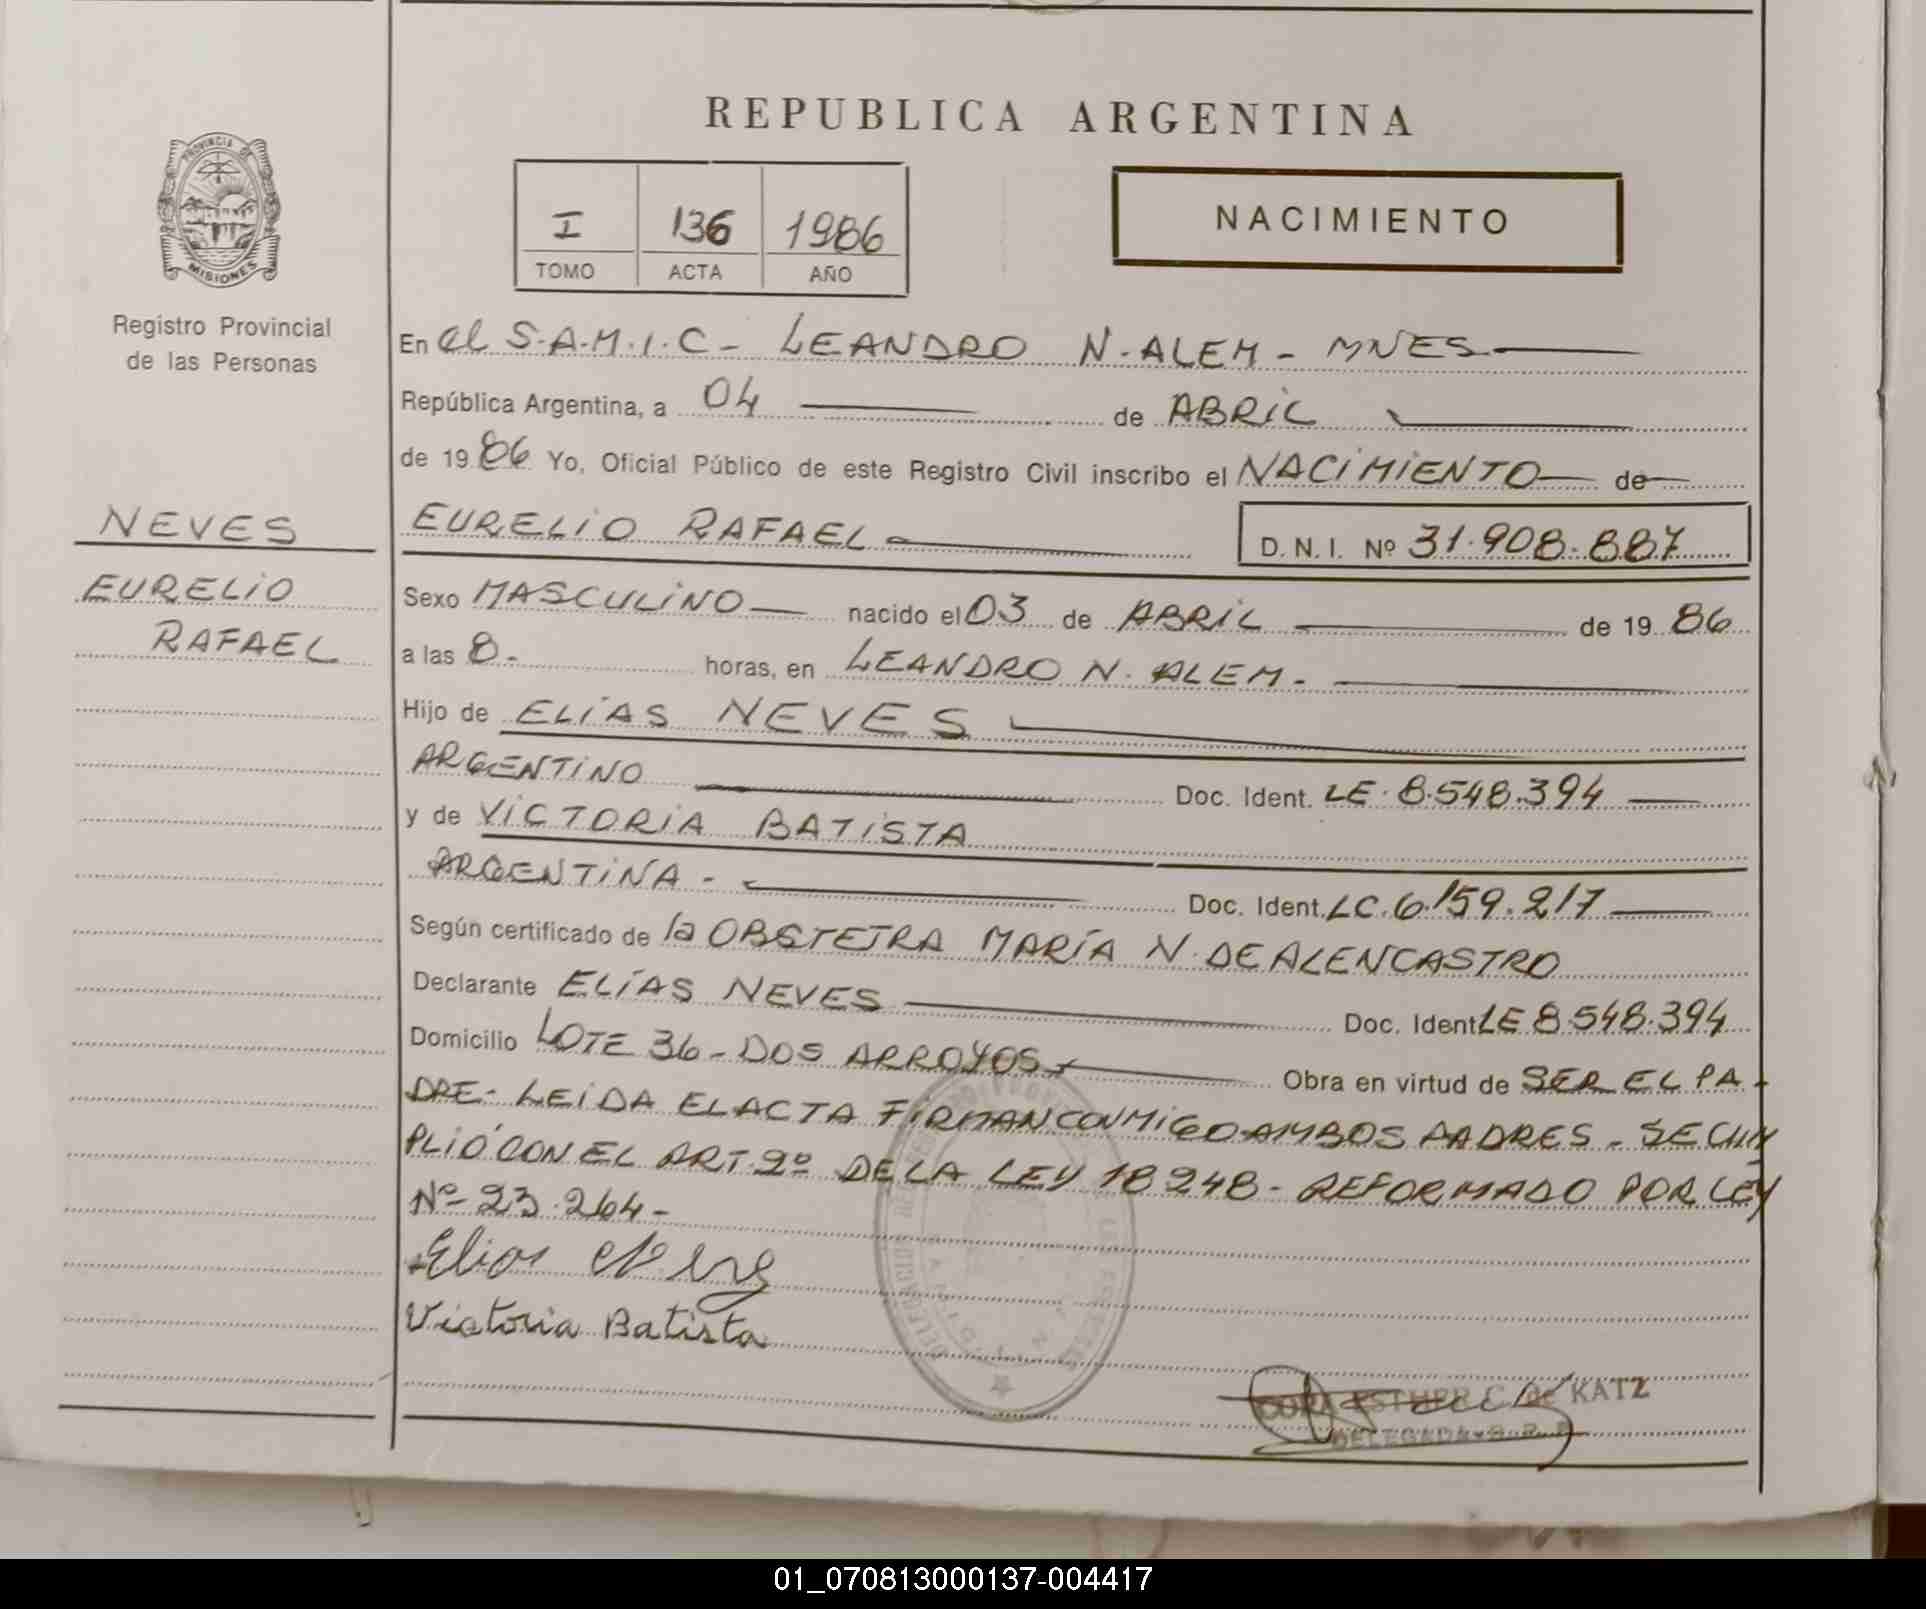 REPUBLICA ARGENTINA
PROVINCIA DE
MISIONES
Registro Provincial
de las Personas
I 136 1986
TOMO ACTA AÑO
NACIMIENTO
En el S.A.M.I.C - LEANDRO N. ALEM - MNES
República Argentina, a 04 de ABRIL
de 1986 Yo, Oficial Público de este Registro Civil inscribo el NACIMIENTO de
NEVES
EURELIO RAFAEL D.N.I. Nº 31.908.887
EURELIO
RAFAEL
Sexo MASCULINO nacido el 03 de ABRIL de 1986
a las 8. horas, en LEANDRO N. ALEM.
Hijo de ELÍAS NEVES
ARGENTINO Doc. Ident. LE. 8.548.394
y de VICTORIA BATISTA
ARGENTINA - Doc. Ident. LC. 6.159.217
Según certificado de la OBSTETRA MARÍA N. DE ALENCASTRO
Declarante ELÍAS NEVES Doc. Ident LE 8.548.394
Domicilio LOTE 36 - DOS ARROYOS Obra en virtud de SER EL PA-
DRE - LEIDA EL ACTA FIRMAN CONMIGO AMBOS PADRES - SE CUM
PLIÓ CON EL ART. 2º DE LA LEY 18248 - REFORMADO POR LEY
Nº 23.264 -
Elias Neves
Victoria Batista
ESTHER C. de KATZ
DELEGADA
01_070813000137-004417